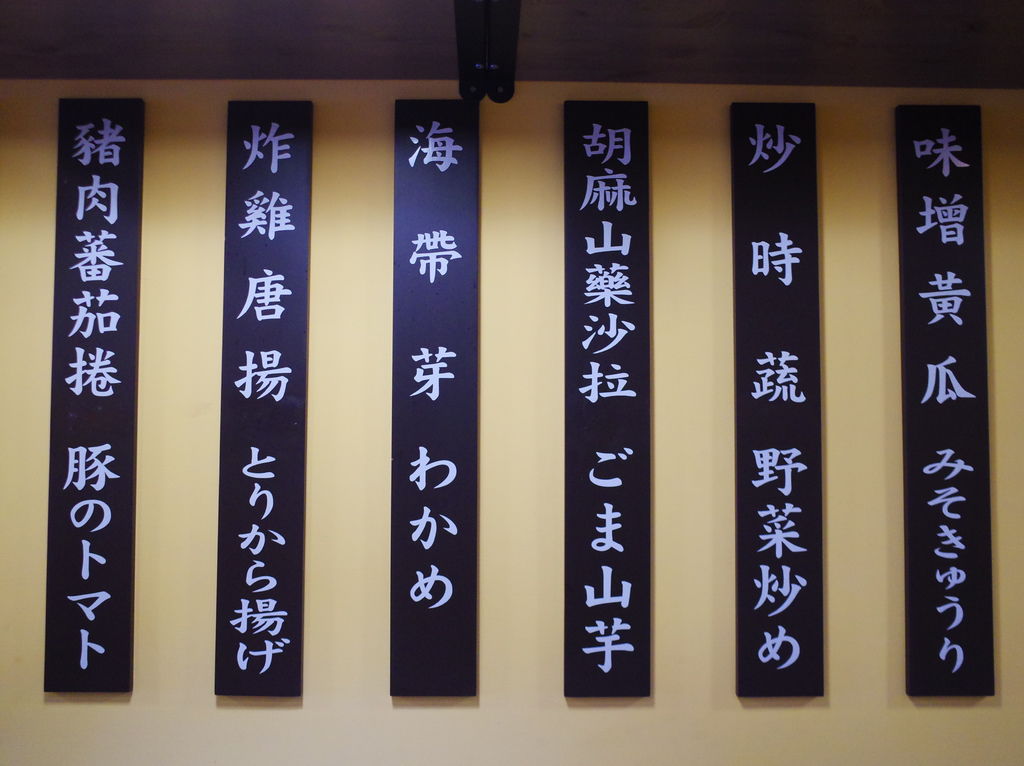 味增黃瓜 みそきゅうり
炒時蔬 野菜炒め
胡麻山藥沙拉 ごま山芋
海帶芽 わかめ
炸雞唐揚 とりから揚げ
豬肉蕃茄捲 豚のトマト